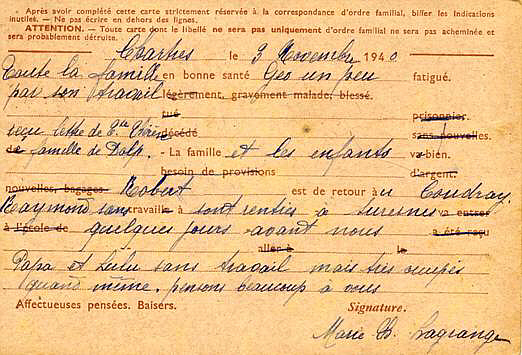 - Après avoir complété cette carte strictement réservée à la correspondance d'ordre familial, biffer les indications
inutiles. - Ne pas écrire en dehors des lignes.
ATTENTION. - Toute carte dont le libellé ne sera pas uniquement d'ordre familial ne sera pas acheminée et
sera probablement détruite.
Chartres le 3 Novembre 1940
Toute la famille en bonne santé Geo un peu fatigué.
par son travail légèrement, gravement malade, blessé.
tué prisonnier.
reçu lettre de décédé sans nouvelles.
de famille de Dolp. - La famille et les enfants va bien.
besoin de provisions d'argent.
nouvelles, bagages Robert est de retour à Coudray.
Raymond sans travaille à sont rentrés à Suresnes va entrer
à l'école de quelques jours avant nous a été reçu
aller à le
Papa et Lulu sans travail mais très occupés
quand même. pensons beaucoup à vous
Affectueuses pensées. Baisers. Signature.
Marie Lagrange